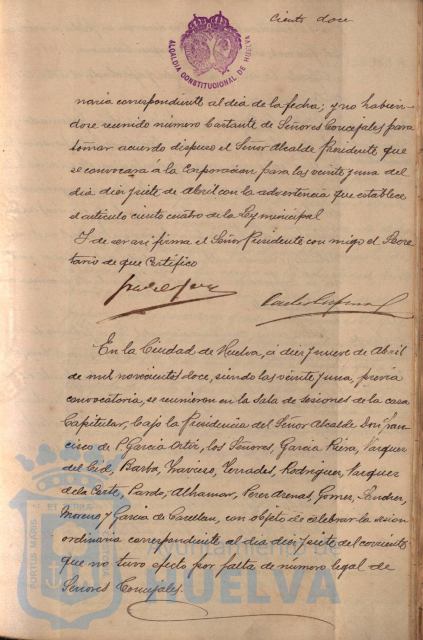 ciento doce
ALCALDIA CONSTITUCIONAL DE HUELVA
naria correspondiente al dia de la fecha; y no habien-
dose reunido número bastante de Señores Concejales para
tomar acuerdo dispuso el Señor Alcalde Presidente que
se convocará á la Corporacion para las veinte y una del
dia diez y siete de Abril con la advertencia que establece
el articulo ciento cuatro de la Ley municipal
Y de ser asi firma el Señor Presidente con migo el Secre
tario de que Certifico
En la Ciudad de Huelva, á diez y nueve de Abril
de mil novecientos doce, siendo las veinte y una, previa
convocatoria, se reunieron en la Sala de sesiones de la casa
Capitular, bajo la Presidencia del Señor Alcalde Don Fran-
cisco de P. Garcia Ortiz, los Señores, Garcia Riera, Vazquez
del Cid, Barba, Travieso, Terrades, Rodriguez, Vazquez
de la Corte, Pardo, Alhamar, Perez, Arenas, Gomez, Sanchez,
Moreno y Garcia de Castellan, con objeto de celebrar la sesion
ordinaria correspondiente al dia diez y siete del corriente
que no tuvo efecto por falta de numero legal de
Señores Concejales.
PORTUS MARIS
Ayuntamiento de
HUELVA